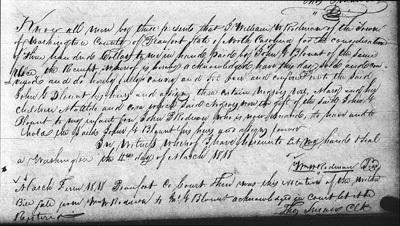 Know all men by these presents that I William W Rodman of the Town
of Washington County of Beaufort State of North Carolina for the consideration
of three hundred Dollars to me in hand paid by John G Blount of the same
place the Receipt whereof is hereby acknowledged have this day sold
negroes and do hereby and confirm unto the said
John G Blount his heirs and assigns three certain Negroes Viz, Mary and her
children Matilda and which said Negroes was the gift of the said John G
Blount to my infant son John Rodman who is now dead, to have and to
hold to the said John G Blount his heirs and assigns forever
In Witness whereof I have hereunto set my hand & seal
at Washington the 4th day of March 1818
Wm W Rodman
March Term 1818 Beaufort Co court then was this execution of the within
Bill Sale from Wm W Rodman to Jno G Blount acknowledged in court Let it be
Registered
Tho Clk